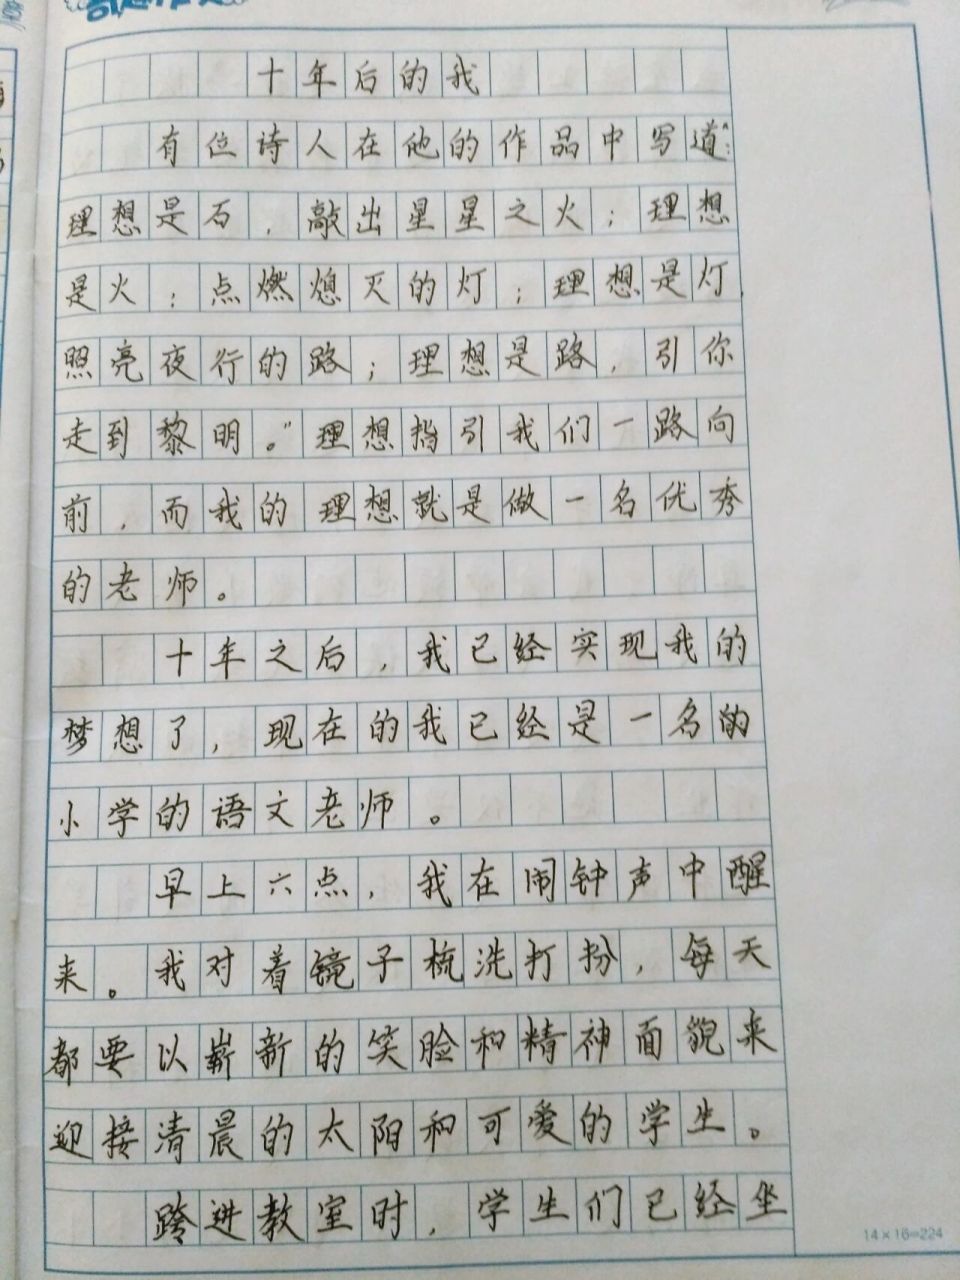 十年后的我
有位诗人在他的作品中写道:"
理想是石，敲出星星之火；理想
是火；点燃熄灭的灯；理想是灯，
照亮夜行的路；理想是路，引你
走到黎明。"理想指引我们一路向
前，而我的理想就是做一名优秀
的老师。
十年之后，我已经实现我的
梦想了，现在的我已经是一名的
小学的语文老师。
早上六点，我在闹钟声中醒
来。我对着镜子梳洗打扮，每天
都要以崭新的笑脸和精神面貌来
迎接清晨的太阳和可爱的学生。
跨进教室时，学生们已经坐
14×16=224